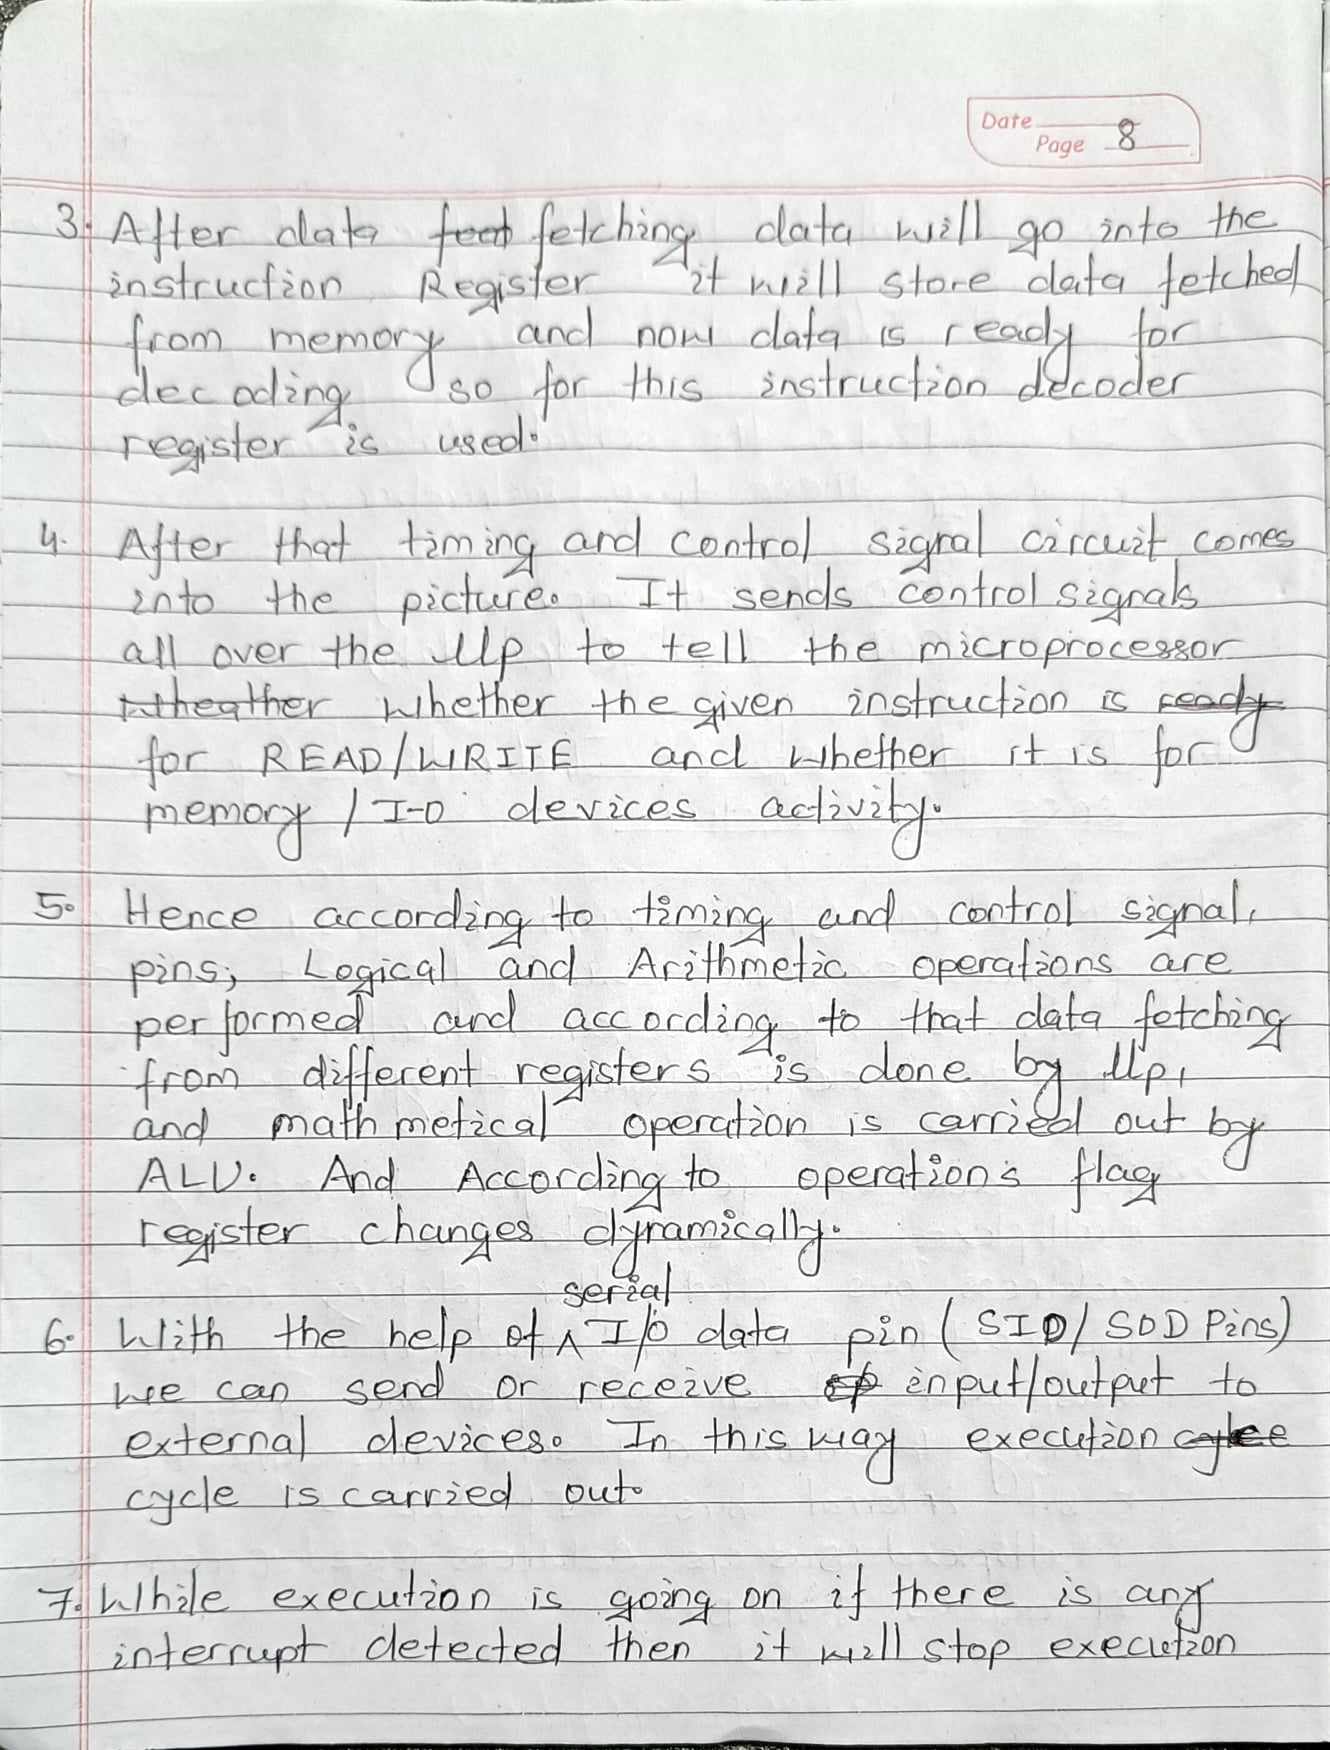 Date
Page 8
3. After data feat fetching data will go into the
instruction Register it will store data fetched
from memory and now data is ready for
decoding so for this instruction decoder
register is used.
4. After that timing and control signal circuit comes
into the picture. It sends control signals
all over the Up to tell the microprocessor
wheather whether the given instruction is ready
for READ/WRITE and whether it is for
memory / I-O devices activity.
5. Hence according to timing and control signal,
pins, Logical and Arithmetic operations are
performed and according to that data fetching
from different registers is done by Up,
and mathmetical operation is carried out by
ALU. And According to operations flag
register changes dynamically.
serial
6. With the help of ^ I/O data pin ( SID/ SOD Pins)
we can send or receive op input/output to
external devices. In this way execution cylce
cycle is carried out.
7. While execution is going on if there is any
interrupt detected then it will stop execution